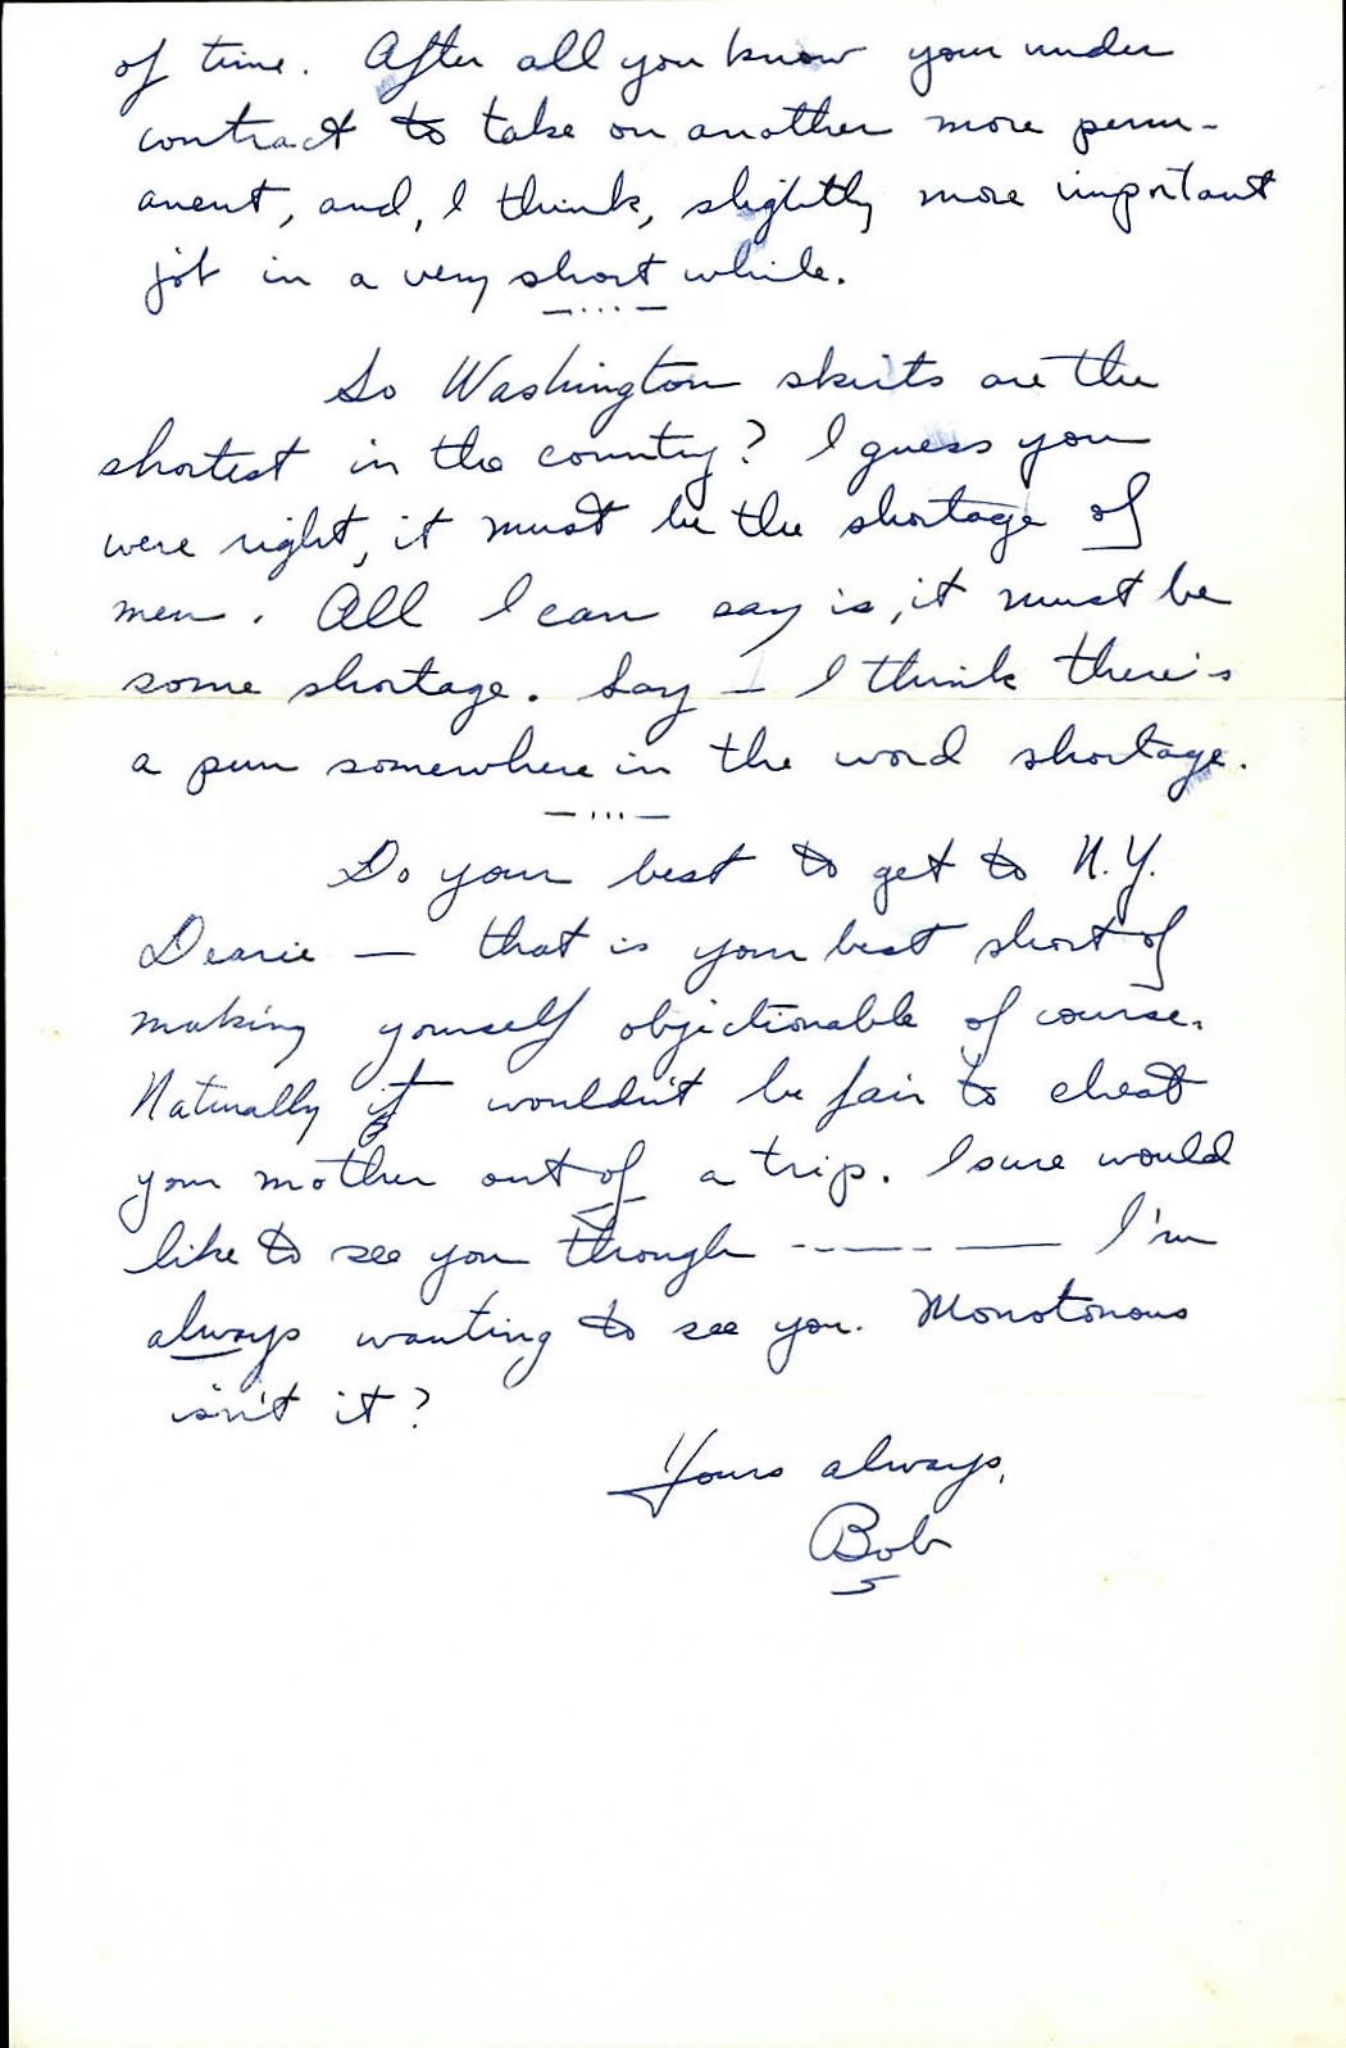 of time. After all you know your under
contract to take on another more perm-
anent, and, I think, slightly more important
job in a very short while.
—...—
So Washington skirts are the
shortest in the country? I guess you
were right, it must be the shortage of
men. All I can say is, it must be
some shortage. Say — I think there's
a pun somewhere in the word shortage.
—...—
Do your best to get to N.Y.
Dearie — that is your best short of
making yourself objectionable of course.
Naturally it wouldn't be fair to cheat
your mother out of a trip. I sure would
like to see you though ----- — I'm
always wanting to see you. Monotonous
isn't it?
Yours always,
Bob